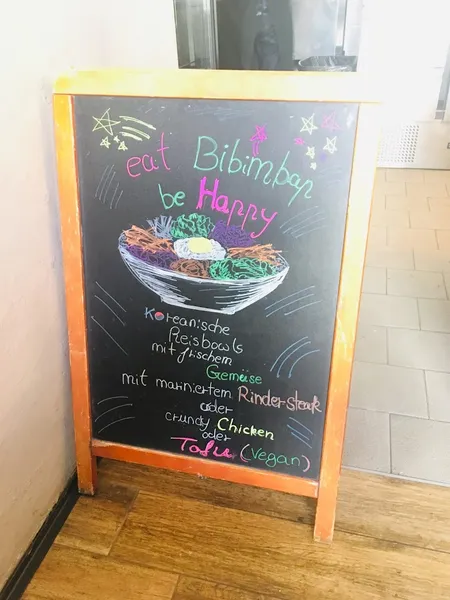 eat Bibimbap
be Happy
Koreanische
Reisbowls
mit frischem
Gemüse
mit mariniertem Rindersteak
oder
crunchy Chicken
oder
Tofu (Vegan)